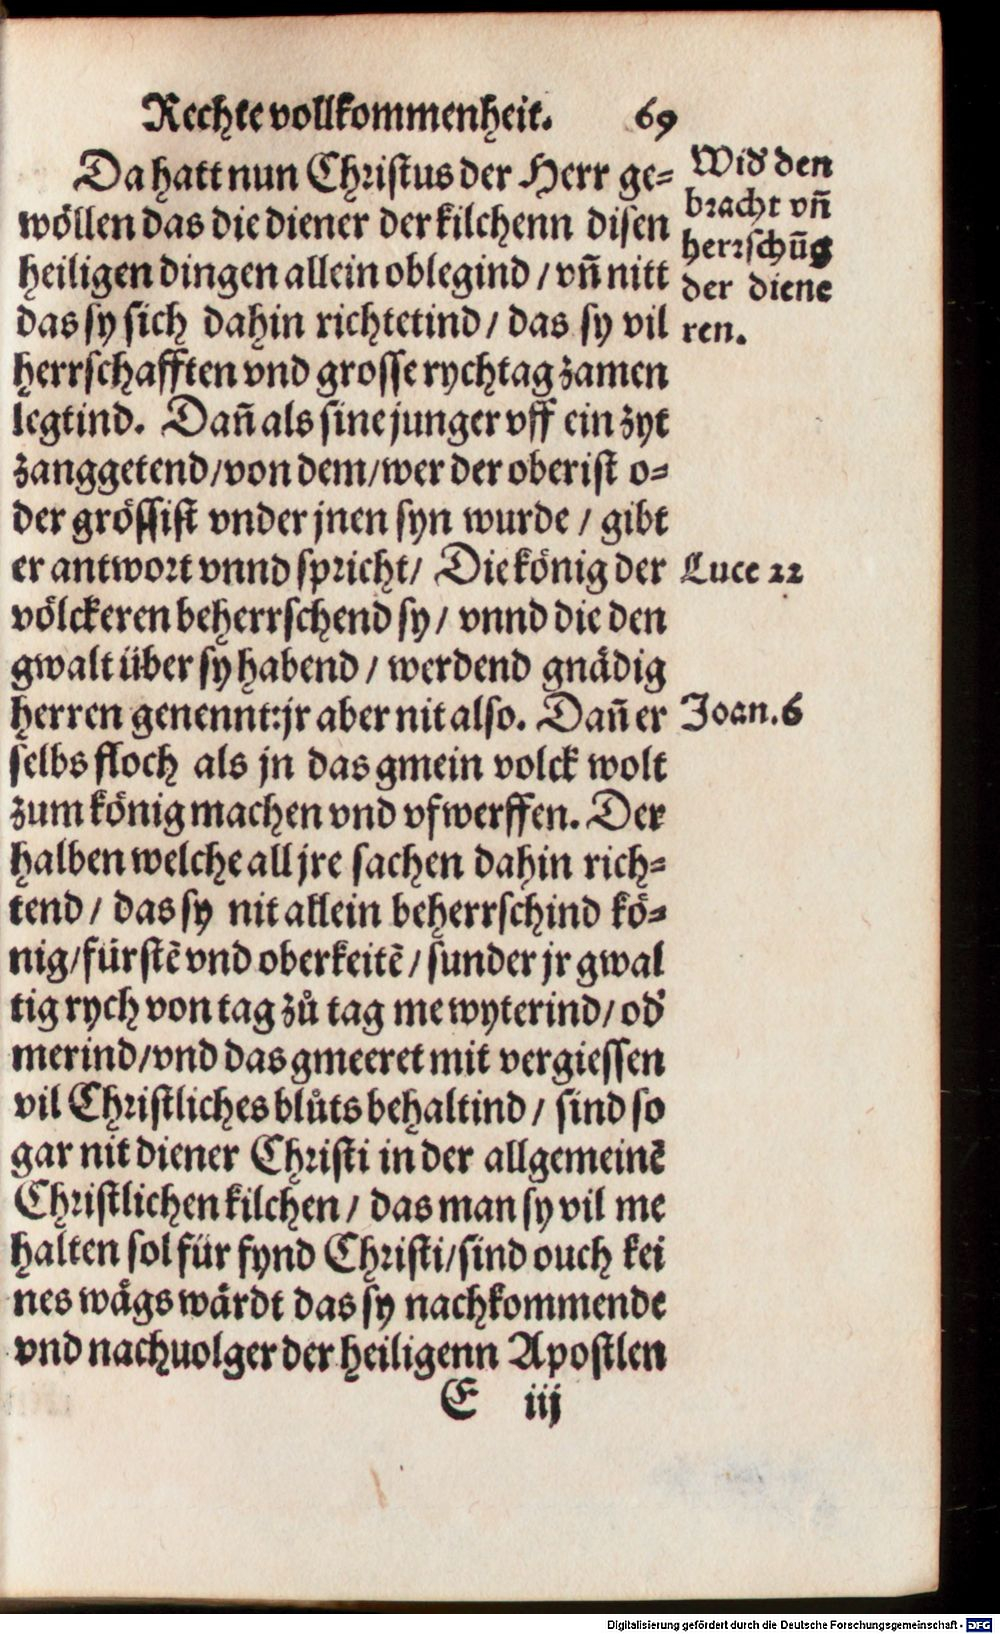 Rechte vollkommenheit. 69
Da hatt nun Christus der Herr ge=
wöllen das die diener der kilchenn disen
heiligen dingen allein oblegind / vñ nitt
das sy sich dahin richtetind / das sy vil
herrschafften vnd grosse rychtag zamen
legtind. Dañ als sine junger vff ein zyt
zanggetend / von dem / wer der oberist o=
der grössist vnder jnen syn wurde / gibt
er antwort vnnd spricht / Die könig der
völckeren beherrschend sy / vnnd die den
gwalt über sy habend / werdend gnädig
herren genennt: jr aber nit also. Dañ er
selbs floch als jn das gmein volck wolt
zum könig machen vnd vfwerffen. Der
halben welche all jre sachen dahin rich=
tend / das sy nit allein beherrschind kö=
nig / fürstē vnd oberkeitē / sunder jr gwal
tig rych von tag zů tag me wyterind / od'
merind / vnd das gmeeret mit vergiessen
vil Christliches blůts behaltind / sind so
gar nit diener Christi in der allgemeinē
Christlichen kilchen / das man sy vil me
halten sol für fynd Christi / sind ouch kei
nes wägs wärdt das sy nachkommende
vnd nachuolger der heiligenn Apostlen
E iij
Wid' den
bracht vñ
herrschūg
der diene
ren.
Luce 22
Joan. 6
Digitalisierung gefördert durch die Deutsche Forschungsgemeinschaft - DFG